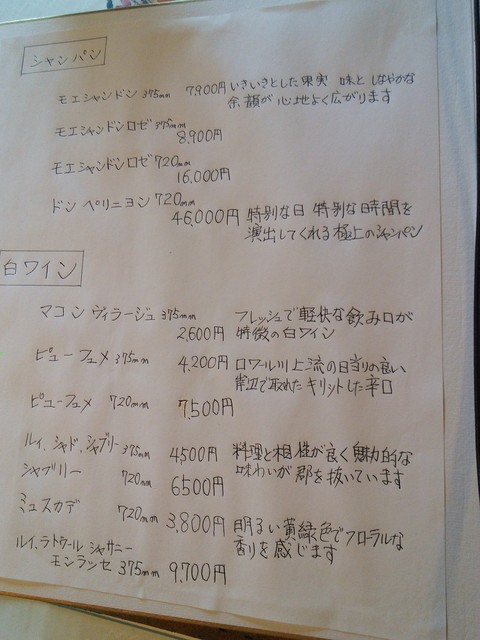 シャンパン
モエシャンドン 375mm 7,900円 いきいきとした果実 味と しなやかな
余韻が 心地よく広がります
モエシャンドンロゼ 375mm
8,900円
モエシャンドンロゼ 720mm
16,000円
ドン ペリニヨン 720mm
46,000円 特別な日 特別な時間を
演出してくれる極上のシャンパン
白ワイン
マコン ヴィラージュ 375mm フレッシュで軽快な飲み口が
2,600円 特徴の白ワイン
ピューフュメ 375mm 4,200円 ロワール川上流の日当りの良い
岸辺で取れた キリットした辛口
ピューフュメ 720mm 7,500円
ルイ、シャド、シャブリー 375mm 4,500円 料理と相性が良く魅力的な
シャブリー 720mm 6500円 味わいが 郡を抜いています
ミュスカデ 720mm 3,800円 明るい黄緑色でフローラルな
香りを感じます
ルイ、ラトゥール シャサニー
モンラッセ 375mm 9,700円